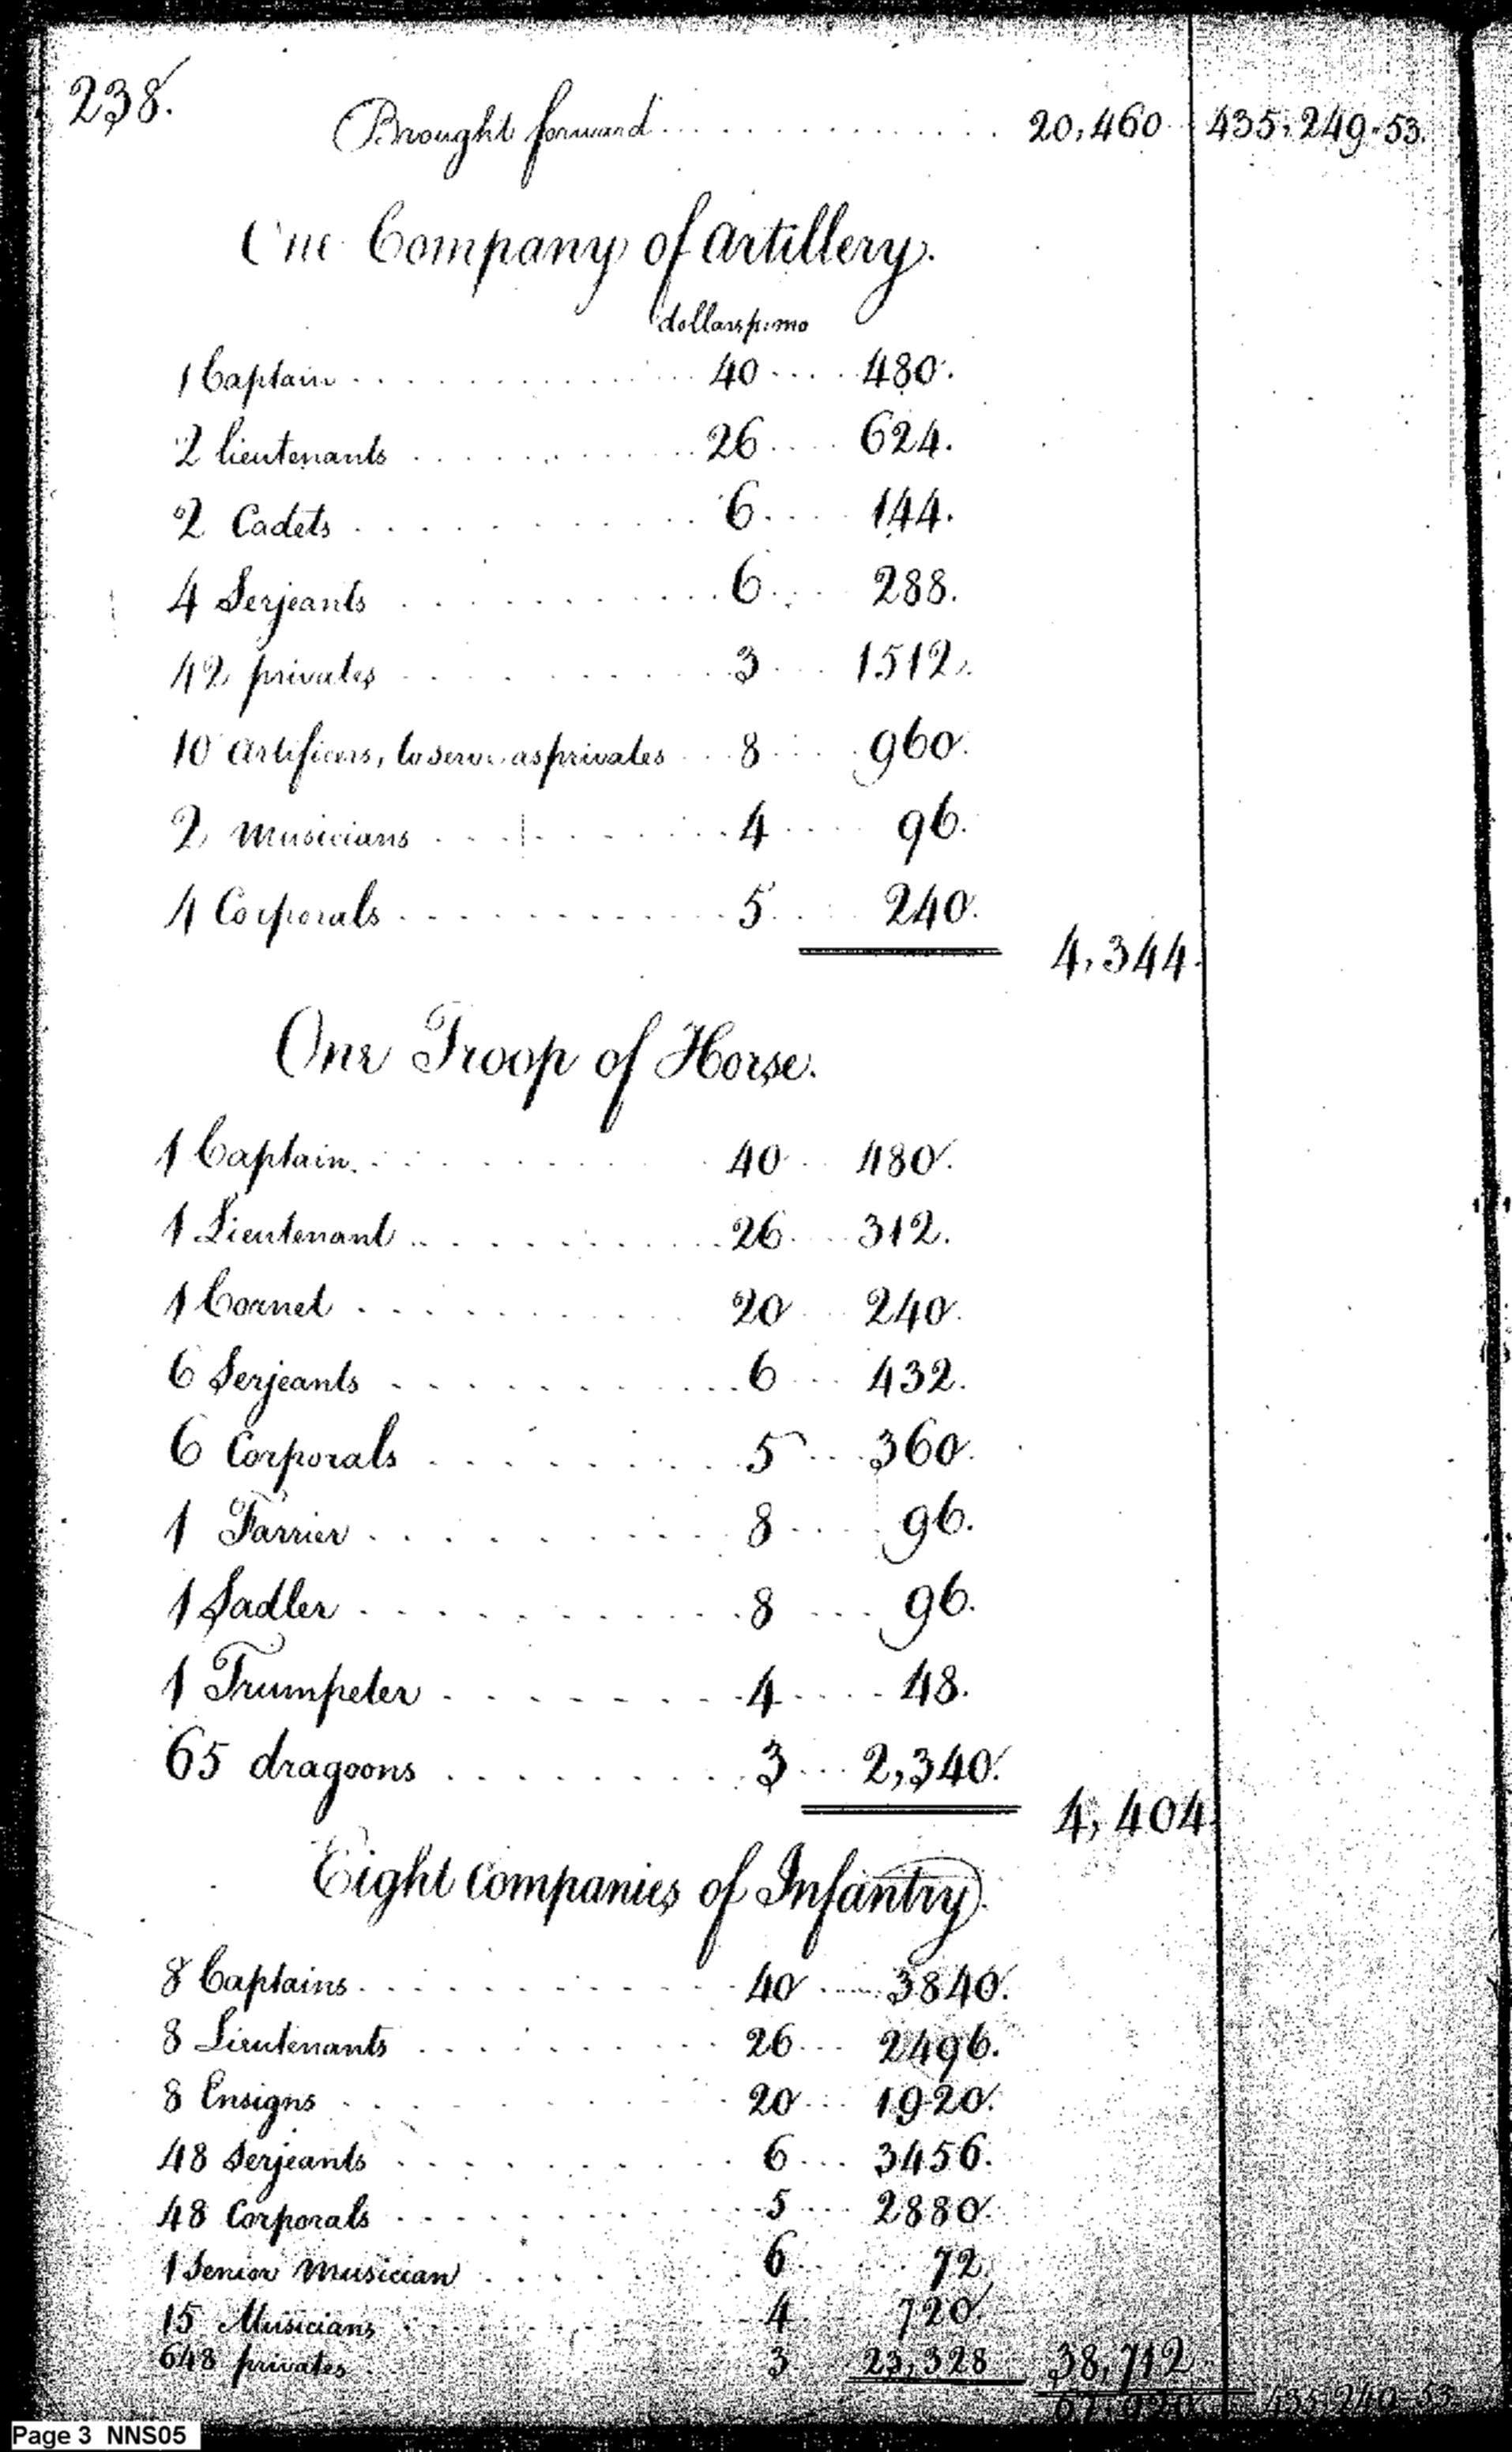 238.
Brought forward .............. 20,460 435,249.53.
One Company of Artillery.
dollars p. mo
1 Captain ........ 40 .... 480.
2 lieutenants ........ 26 .... 624.
2 Cadets ........ 6 .... 144.
4 Serjeants ........ 6 .... 288.
42 privates ........ 3 .... 1512.
10 Artificers, to serve as privates ... 8 .... 960.
2 Musicians ........ 4 .... 96.
4 Corporals ........ 5 .... 240.
4,344.
One Troop of Horse.
1 Captain ........ 40 ... 480.
1 Lieutenant ........ 26 .... 312.
1 Cornet ........ 20 ... 240.
6 Serjeants ........ 6 .... 432.
6 Corporals ........ 5 .... 360.
1 Farrier ........ 8 .... 96.
1 Sadler ........ 8 .... 96.
1 Trumpeter ........ 4 .... 48.
65 dragoons ........ 3 ... 2,340.
4,404.
Eight Companies of Infantry.
8 Captains ........ 40 .... 3840.
8 Lieutenants ........ 26 ... 2496.
8 Ensigns ........ 20 ... 1920.
48 Serjeants ........ 6 ... 3456.
48 Corporals ........ 5 ... 2880.
1 Senior Musician ........ 6 .... 72.
15 Musicians ........ 4 .... 720.
648 privates ........ 3 23,328 38,712
67,920 435,249-53.
Page 3 NNS05